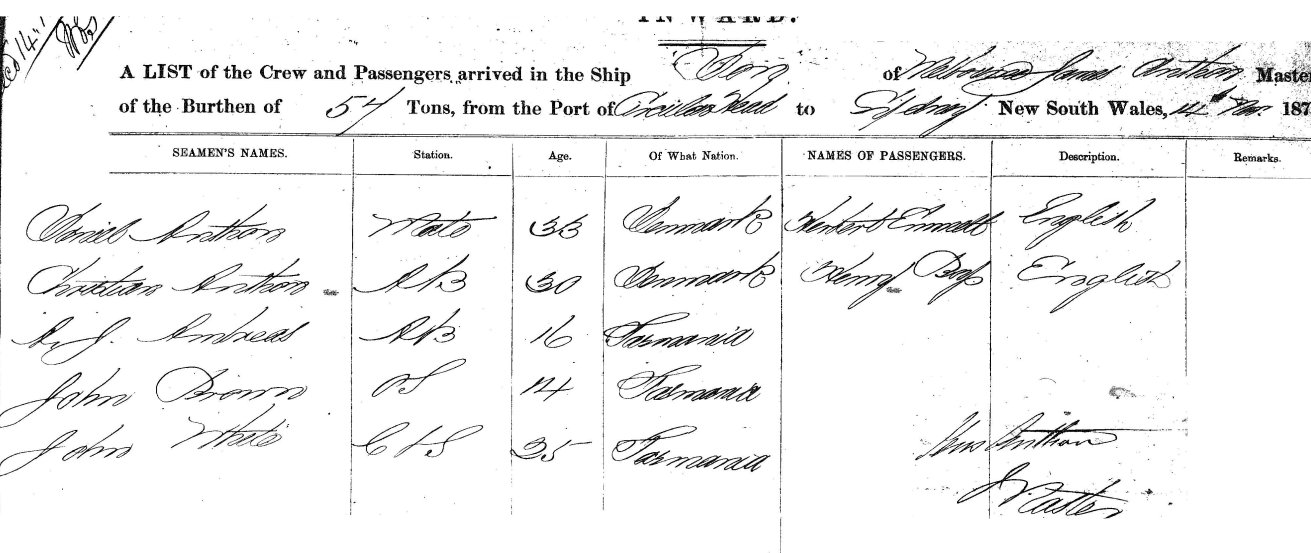 INWARD.
A LIST of the Crew and Passengers arrived in the Ship of Melbourne James Anthon Master
of the Burthen of 54 Tons, from the Port of Circular Head to Sydney New South Wales, 14th 187
SEAMEN'S NAMES. Station. Age. Of What Nation. NAMES OF PASSENGERS. Description. Remarks.
Daniel Anthon Mate 33 Denmark Herbert Emmett English
Christian Anthon AB 30 Denmark Henry English
A. J. Andreas AB 16 Tasmania
John Brown OS 14 Tasmania
John White C & S 35 Tasmania
Jens Anthon
Master